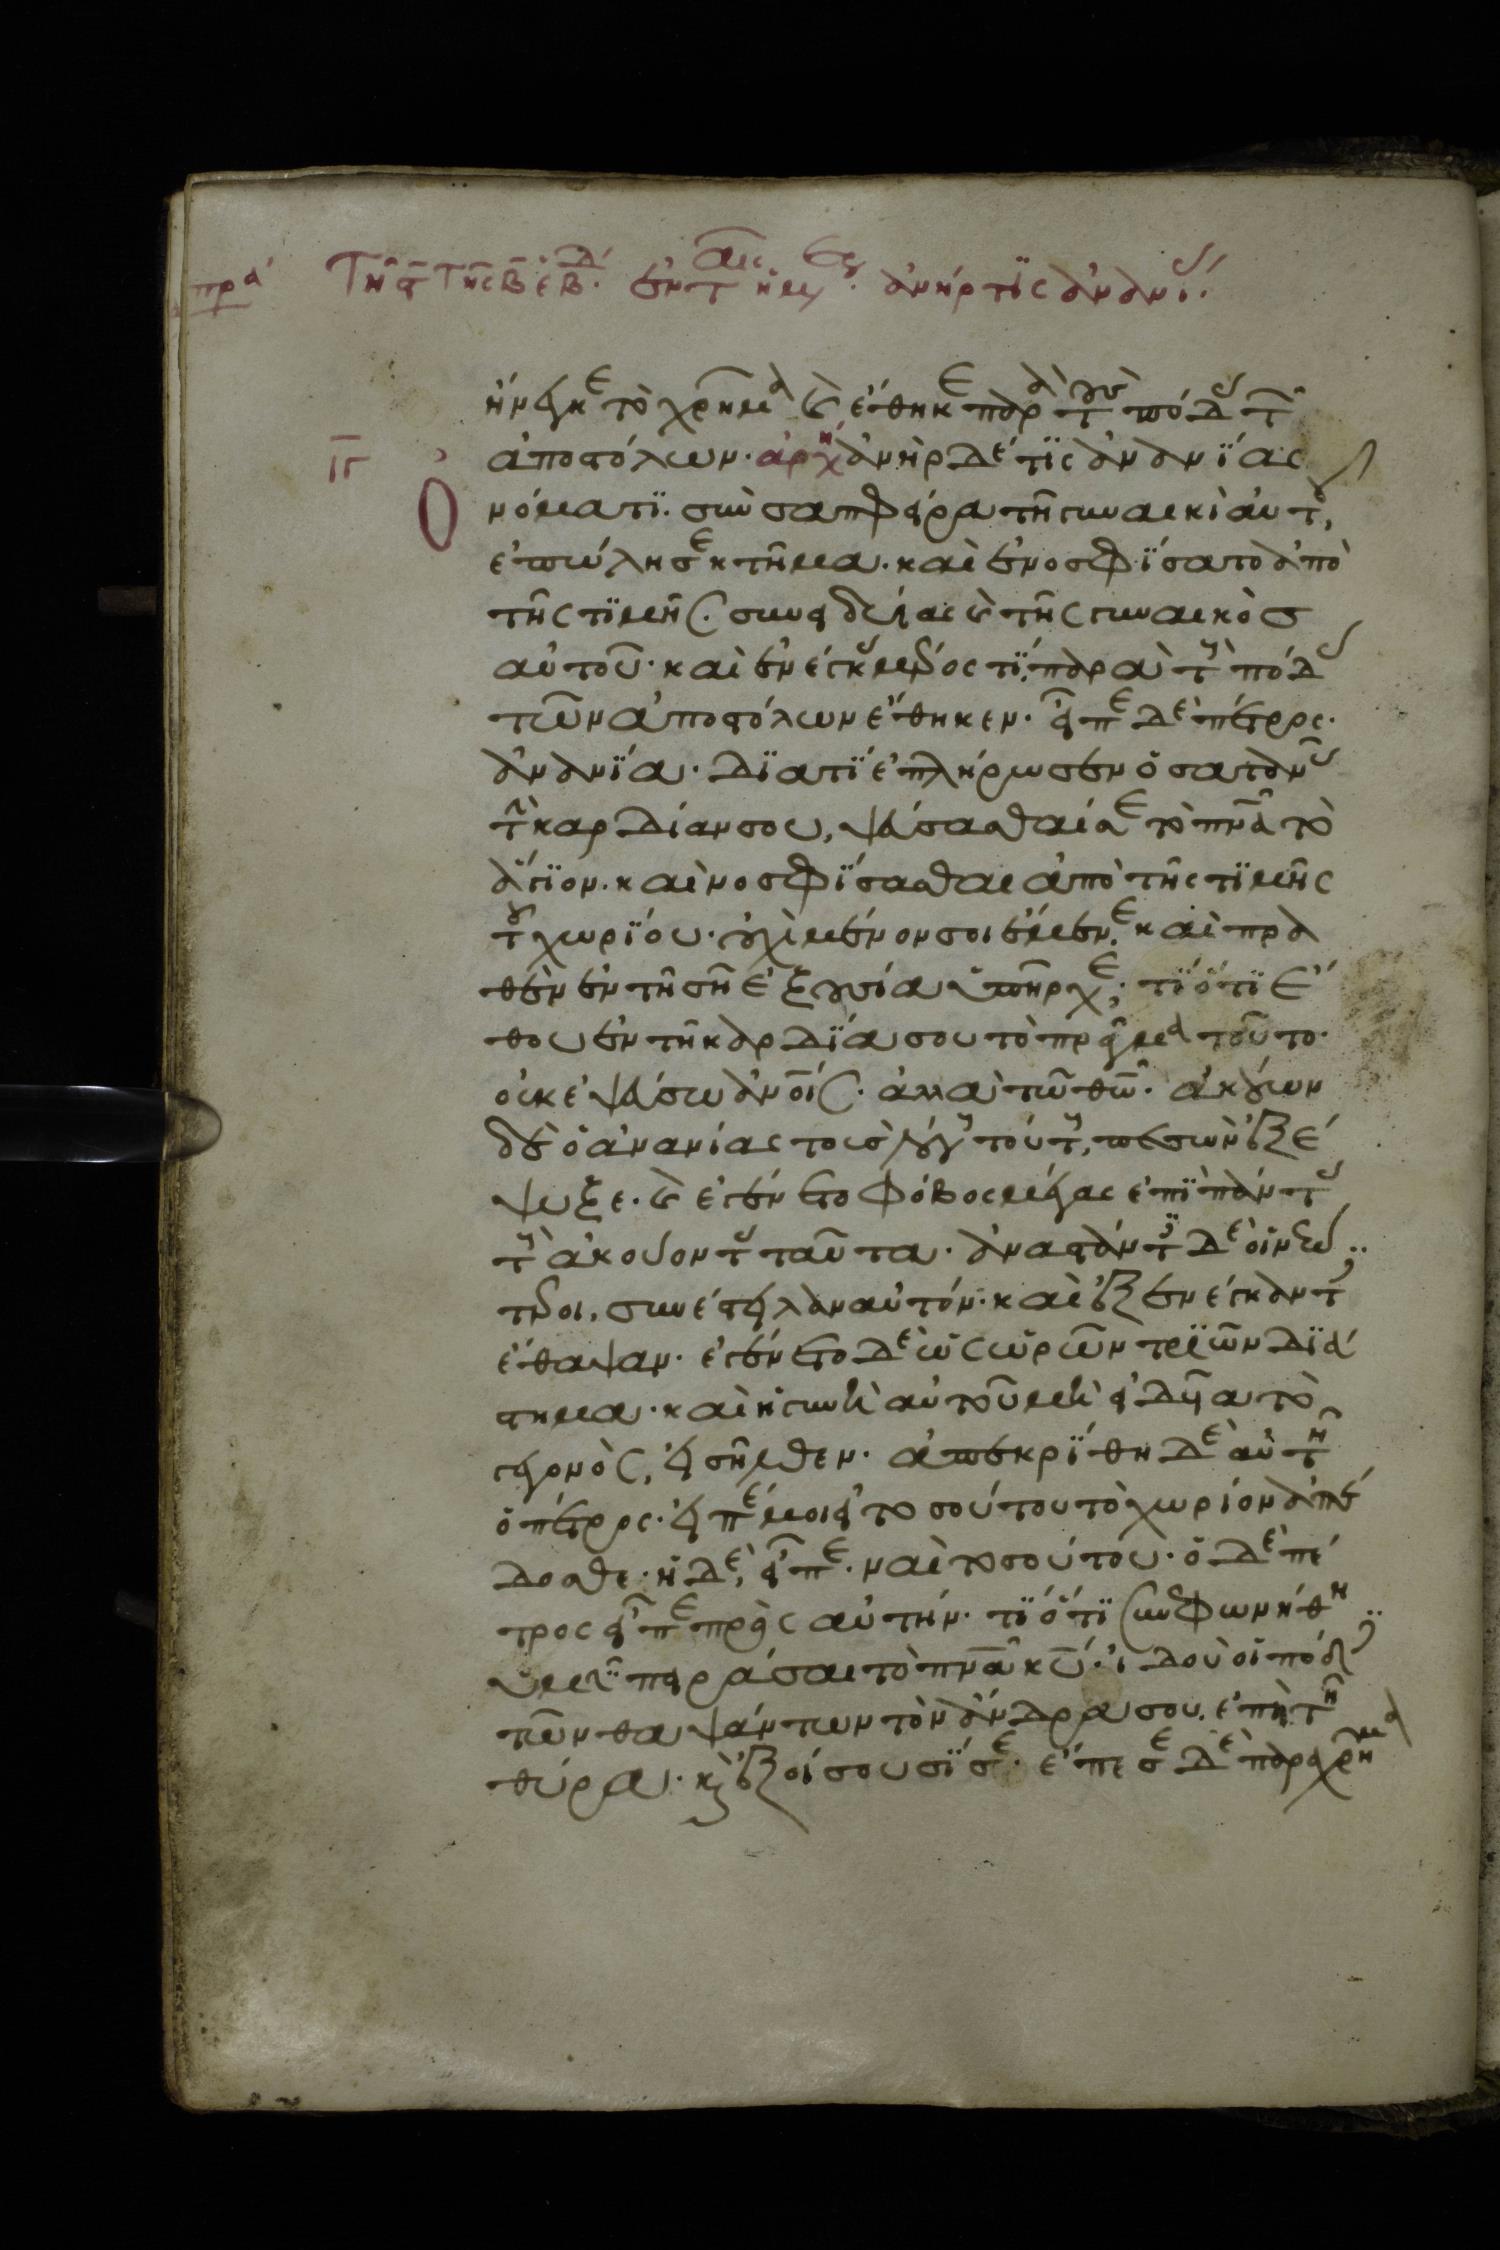 πρα Τῆ ϛ τῆς β εβδ. ἐν ταις ἡμεραις. ἀνήρ τϊς ἀνανί
ἤνεγκε τὸ χρῆμα καὶ ἔθηκε παρὰ τοὺς πόδας τῶν
ιγ ἀποστόλων. ἀρχὴ ἀνὴρ δέ τϊς ἀνανϊας
ὀνόματϊ. σὺν σαπφείρα τῆ γυναικὶ αὐτοῦ,
ἐπώλησε κτῆμα. καὶ ἐνοσφϊσατο ἀπὸ
τῆς τϊμῆς. συνειδείας καὶ τῆς γυναικὸσ
αὐτοῦ. καὶ ἐνέγκας μέρος τϊ, παρὰ τοὺς πόδας
τῶν ἀποστόλων ἔθηκεν. εἶπε δὲ πέτρος.
ἀνανϊα. Διατϊ ἐπλήρωσεν ὁ σατανᾶς
τὴν καρδίαν σου, ψεύσασθαί σε τὸ πνα τὸ
ἅγϊον. καὶ νοσφϊσασθαι ἀπὸ τῆς τϊμῆς
τοῦ χωρϊου. οὐχὶ μένον σοι ἔμενε. καὶ πρα
θὲν ἐν τῆ σῆ ἐξουσία ὑπῆρχε; τϊ ὅτϊ ἔ
θου ἐν τῆ καρδϊα σου τὸ πρᾶγμα τοῦτο.
οὐκ ἐψεύσω ἀνοις. ἀλλὰ τῶ θω. ἀκούων
δὲ ὁ ἀνανίας τοὺς λόγους τούτους, πεσὼν ἐξέ
ψυξε. καὶ ἐγένετο φόβος μέγας ἐπὶ πάντας
τοὺς ἀκούοντας ταῦτα. ἀναστάντες δὲ οἱ νεώ
τεροι, συνέστειλαν αὐτόν. καὶ ἐξενέγκαντες
ἔθαψαν. ἐγένετο δὲ ὡς ὡρῶν τριῶν διά
στημα. καὶ ἡ γυνὴ αὐτοῦ μὴ εἰδῆα τὸ
γεγονὸς, εἰσῆλθεν. ἀπεκρϊθη δὲ αὐτῆ
ὁ πέτρος. εἰπέ μοι εἰ τοσούτου τὸ χωρίον ἀπέ
δοσθε. ἡ δὲ, εἶπε. ναὶ τοσούτου. ὁ δὲ πέ
τρος εἶπε πρὸς αὐτήν. τϊ ὅτϊ συνεφωνήθη
ὑμῖν πειράσαι τὸ πνα κυ. ἰδοὺ οἱ πόδες
τῶν θαψάντων τὸν ἄνδρα σου, ἐπὶ τῆ
θύρα. καὶ ἐξοίσουσϊ σε. ἔπεσε δὲ παραχρῆμα